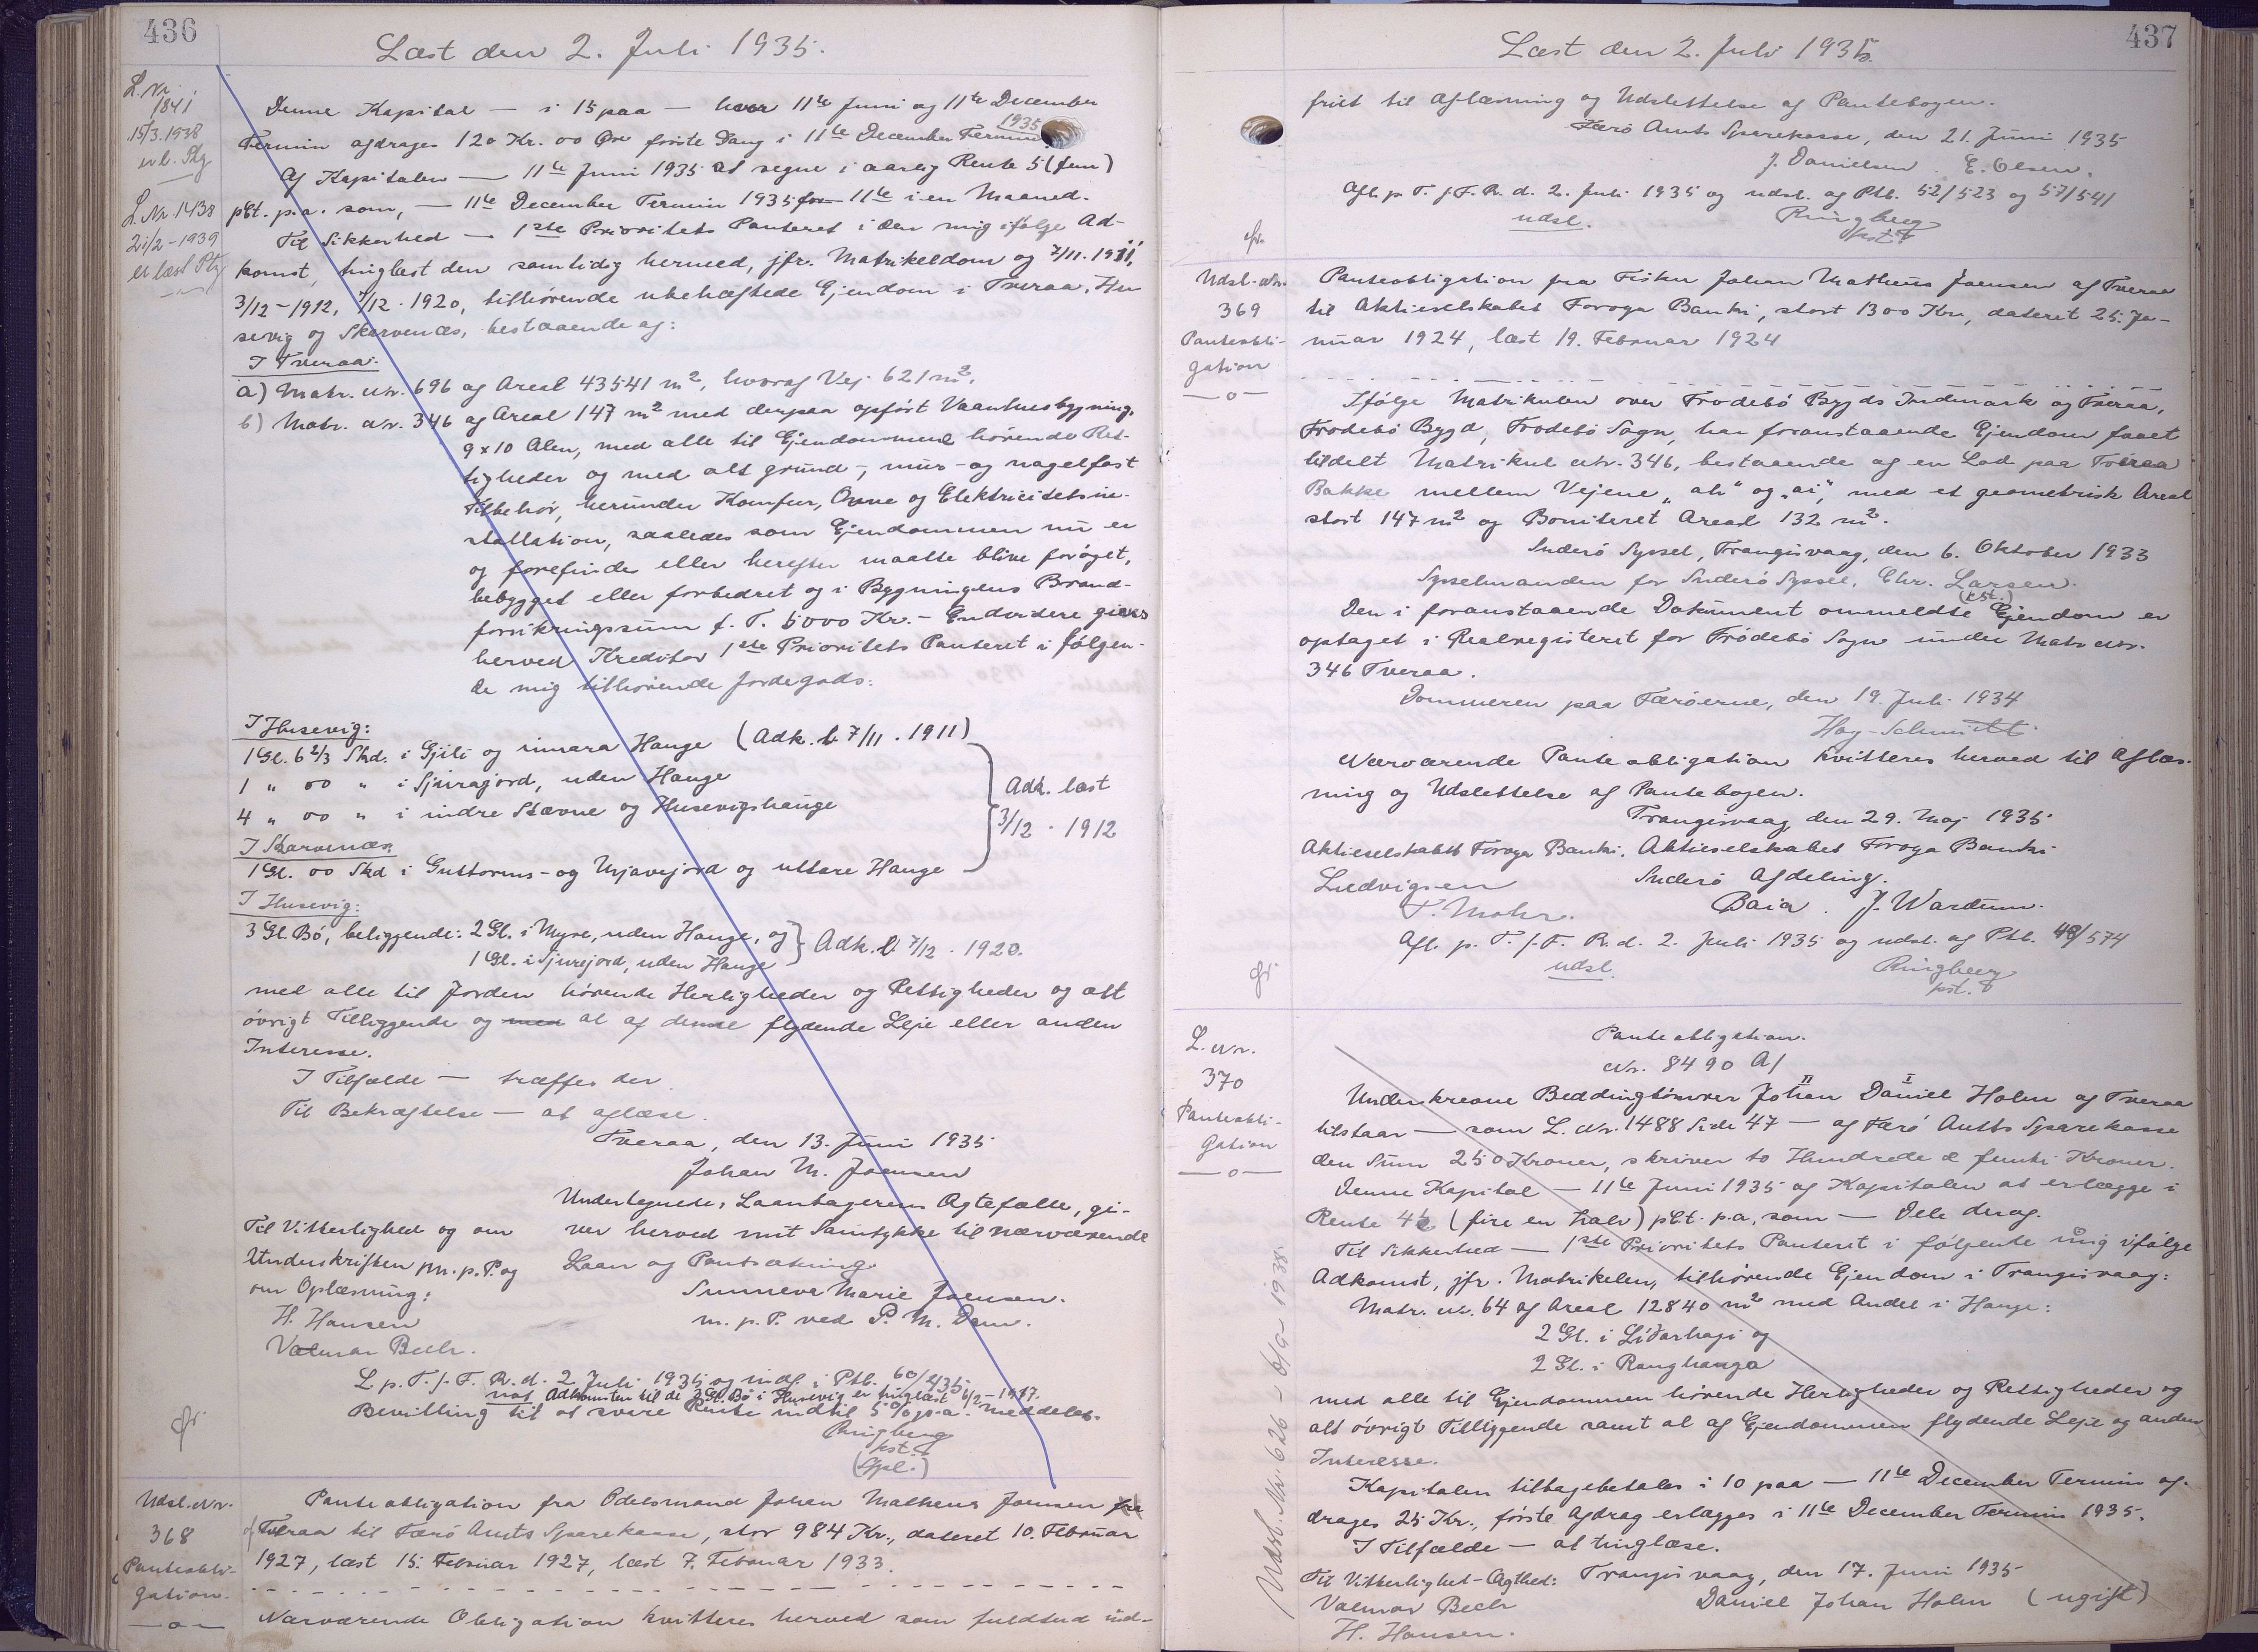 436
Læst den 2. Juli 1935.
L. Nr.
1841
15/3.1938
er l. Ptg
L. Nr. 1438
21/2-1939
er læst Ptg
Denne Kapital — i 15 paa — hver 11te Juni og 11te December
Termin afdrages 120 Kr. 00 Øre første Gang i 11te December Termin 1935.
Af Kapitalen — 11te Juni 1935 at regne i aarlig Rente 5 (fem)
pCt. p.a. som, — 11te December Termin 1935 for 11te i en Maaned.
Til Sikkerhed — 1ste Prioritets Panteret i den mig ifølge Ad-
komst, tinglæst den samtidig hermed, jfr. Matrikeldom og 7/11.1911,
3/12-1912, 7/12.1920, tilhørende ubehæftede Ejendom i Tveraa, Hu
sevig og Skarvenæs, bestaaende af:
I Tveraa:
a) Matr. Nr. 696 af Areal 43541 m², hvoraf Vej 621 m².
b) Matr. Nr. 346 af Areal 147 m² med derpaa opført Vaanhusbygning,
9x10 Alen, med alle til Ejendommene hørende Ret-
tigheder og med alt grund-, mur- og nagelfast
Tilbehør, herunder Komfur, Ovne og Elektricitetsin-
stallation, saaledes som Ejendommen nu er
og forefindes eller herefter maatte blive forøget,
bebygget eller forbedret og i Bygningens Brand-
forsikringssum f. T. 5000 Kr. - Endvidere gives
herved Kreditor 1ste Prioritets Panteret i følgen-
de mig tilhørende Jordegods:
I Husevig:
1 Gl. 6 2/3 Skd. i Gjili og innara Hauge (Adk. l. 7/11. 1911)
1 " 00 " i Sjurajord, uden Hauge
4 " 00 " i indre Stavne og Husevigshauge
Adk. læst
3/12. 1912
I Skarvenæs:
1 Gl. 00 Skd i Guttorms- og Mjavejord og uttare Hauge
I Husevig:
3 Gl. Bø, beliggende: 2 Gl. i Myre, uden Hauge, og
1 Gl. i Sjurejord, uden Hauge
Adk. l. 7/12. 1920.
med alle til Jorden hørende Herligheder og Rettigheder og alt
øvrigt Tilliggende og med al af denne flydende Leje eller anden
Interesse.
I Tilfælde — træffes der
Til Bekræftelse — at aflæse.
Tveraa, den 13. Juni 1935
Johan M. Joensen
Undertegnede, Laantagerens Ægtefælle, gi-
Til Vitterlighed og om ver herved mit Samtykke til nærværende
Underskriften m. p. P. og Laan og Pantsætning.
om Oplæsning: Sunneva Marie Joensen.
H. Hansen m. p. P. ved P. M. Dam.
Valmar Bech.
L. p. T. f. F. R. d. 2 Juli 1935 og indf. i Ptb. 60/435
not Adkomsten til de 3 Gl. Bø i Husevig er tinglæst 6/2-1917.
Bevilling til at svare Rente indtil 5% p.a. meddeles.
Ringberg
kst.
(Gpl.)
Udsl. Nr.
368
Panteobli-
gation.
—o—
Panteobligation fra Odelsmand Johan Matheus Joensen fra
af Tveraa til Færø Amts Sparekasse, stor 984 Kr., dateret 10. Februar
1927, læst 15. Februar 1927, læst 7. Februar 1933.
Nærværende Obligation kvitteres herved som fuldtud ind-
437
Læst den 2. Juli 1935.
friet til Aflæsning og Udslettelse af Pantebogen.
Færø Amts Sparekasse, den 21. Juni 1935
J. Danielsen E. Olsen.
Afl. p. T. f. F. R. d. 2. Juli 1935 og udsl. af Ptb. 52/523 og 57/541
udsl. Ringberg
kst.
Udsl. Nr.
369
Panteobli-
gation
—o—
Panteobligation fra Fisker Johan Matheus Joensen af Tveraa
til Aktieselskabet Føroya Banki, stort 1300 Kr., dateret 25. Ja-
nuar 1924, læst 19. Februar 1924
Ifølge Matrikulen over Frodebø Bygds Indmark og Tveraa,
Frodebø Bygd, Frodebø Sogn, har foranstaaende Ejendom faaet
tildelt Matrikul Nr. 346, bestaaende af en Lod paa Tveraa
Bakke mellem Vejene "ah" og "ai", med et geometrisk Areal
stort 147 m² og Boniteret Areal 132 m².
Suderø Syssel, Trangisvaag, den 6. Oktober 1933
Sysselmanden for Suderø Syssel, Chr. Larsen.
(kst.)
Den i foranstaaende Dokument ommeldte Ejendom er
optaget i Realregisteret for Frødebø Sogn under Matr. Nr.
346 Tveraa.
Dommeren paa Færøerne, den 19. Juli 1934
Hag-Schmidt
Nærværende Panteobligation kvitteres herved til Aflæs-
ning og Udslettelse af Pantebogen.
Trangisvaag den 29. Maj 1935
Aktieselskabet Føroya Banki. Aktieselskabet Føroya Banki
Ludvigsen Suderø Afdeling.
P. Mohr. Baia. J. Wardum.
Afl. p. T. f. F. R. d. 2. Juli 1935 og udsl. af Ptb. 48/574
udsl. Ringberg
kst.
L. Nr.
370
Panteobli-
gation
—o—
Panteobligation.
Nr. 8490 A/
Underskrevne Beddingtømrer Johan Daniel Holm af Tveraa
II I
tilstaar — som L. Nr. 1488 Side 47 — af Færø Amts Sparekasse
den Sum 250 Kroner, skriver to Hundrede & femti Kroner.
Denne Kapital — 11te Juni 1935 af Kapitalen at erlægge i
Rente 4½ (fire en halv) pCt. p.a, som — Dele deraf.
Til Sikkerhed — 1ste Prioritets Panteret i følgende mig ifølge
Adkomst, jfr. Matrikelen, tilhørende Ejendom i Trangisvaag:
Matr. Nr. 64 af Areal 12840 m² med Andel i Hauge:
2 Gl. i Líðarhagi og
2 Gl. i Ranghauga
med alle til Ejendommen hørende Herligheder og Rettigheder og
alt øvrigt Tilliggende samt al af Ejendommen flydende Leje og anden
Interesse.
Kapitalen tilbagebetales i 10 paa — 11te December Termin af-
drages 25 Kr., første Afdrag erlægges i 11te December Termin 1935.
I Tilfælde — at tinglæse.
Til Vitterlighet-Ægthed: Trangisvaag, den 17. Juni 1935
Valmar Bech Daniel Johan Holm (ugift)
H. Hansen.
Udsl. Nr. 626 - 1935